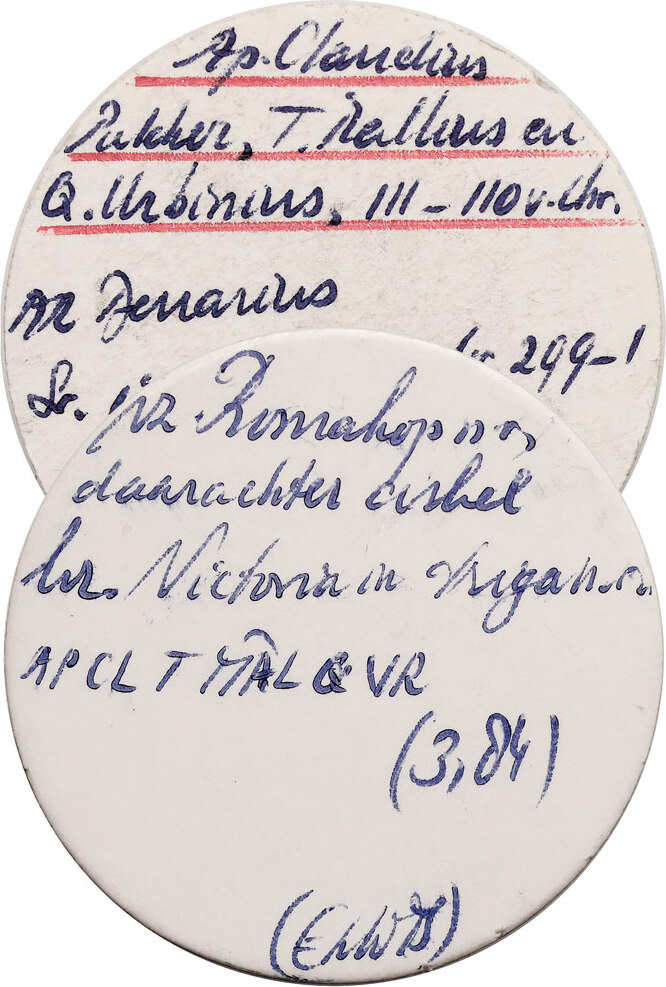 Ap. Claudius
Pulcher, T. Mallius en
Q. Urbinius, 111-110 v. Chr.
AR Denarius
Cr 299-1
Vz. Romakop n r,
daarachter cirkel
kz. Victoria in triga n.r.
AP CL T MAL Q VR
(3,84)